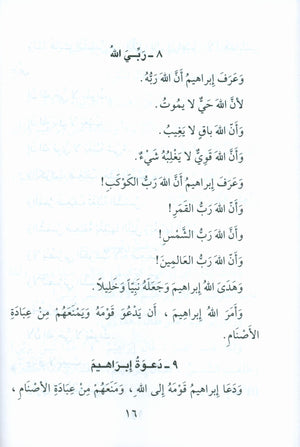 ٨ ـ رَبِّيَ اللهُ
وَعَرَفَ إِبراهيمُ أَنَّ اللهَ رَبُّهُ.
لأنَّ اللهَ حَيٌّ لا يموتُ.
وَأَنَّ اللهَ باقٍ لا يَغِيبُ.
وَأَنَّ اللهَ قَوِيٌّ لا يَغْلِبُهُ شَيْءٌ.
وَعَرَفَ إبراهيمُ أَنَّ اللهَ رَبُّ الكَوْكَبِ!
وَأَنَّ اللهَ رَبُّ القَمَرِ!
وأَنَّ اللهَ رَبُّ الشَّمْسِ!
وَأَنَّ اللهَ رَبُّ العالَمِينَ!
وَهَدَىَ اللهُ إبراهيمَ وَجَعَلَهُ نَبِيّاً وَخَلِيلاً.
وَأَمَرَ اللهُ إبراهِيمَ ، أن يَدْعُوَ قَوْمَهُ وَيَمْنَعَهُمْ مِنْ عِبَادَةِ
الأَصْنَامِ.
٩ ـ دَعوَةُ إبرَاهيمَ
وَدَعَا إبراهيمُ قَوْمَهُ إلى اللهِ ، وَمَنَعَهُمْ مِنْ عِبَادَةِ الأصْنَامِ ،
١٦